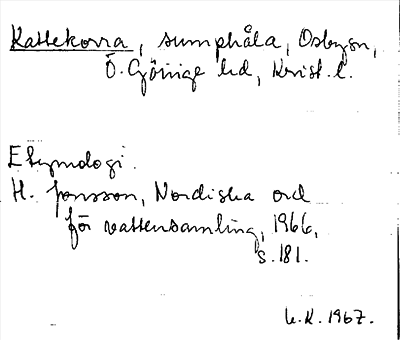 Kattekorra, sumphåla, Osbysn,
Ö. Göinge hd, Krist. l.
Etymologi.
H. Jonsson, Nordiska ord
för vattensamling, 1966,
s. 181.
U.K. 1967.